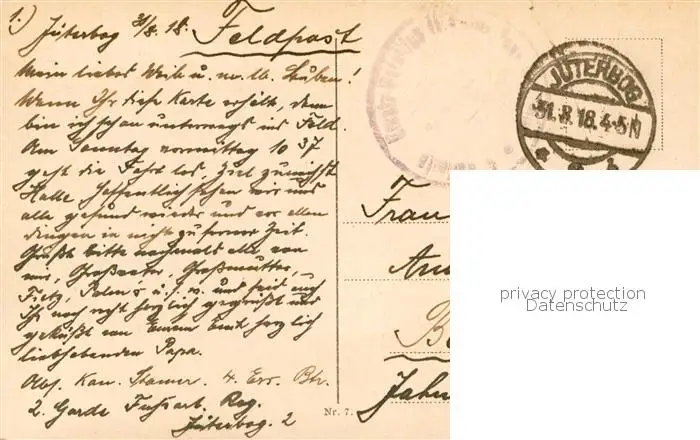 1.) Jüterbog 31/8. 18. Feldpost
Mein liebes Weib u. m. lb. Buben!
Wenn Ihr diese Karte erhält, dann
bin ich schon unterwegs ins Feld.
Am Sonntag vormittag 10 37
geht die Fahrt los, Ziel zunächst
Halle. Hoffentlich sehen wir uns
alle gesund wieder und vor allen
dingen in nicht zu ferner Zeit.
Grüßt bitte nochmals alle von
mir, Großvater, Großmutter,
Fietz, u. s. w. und seid auch
Ihr noch recht herzlich gegrüßt und
geküßt von Eurem Euch herzlich
liebhabenden Papa.
Abs. Kan. 4. Ers. Btr.
2. Garde Fussart. Reg.
Jüterbog. 2
JÜTERBOG
31.8.18.4-5N
Frau
Nr. 7.
privacy protection
Datenschutz